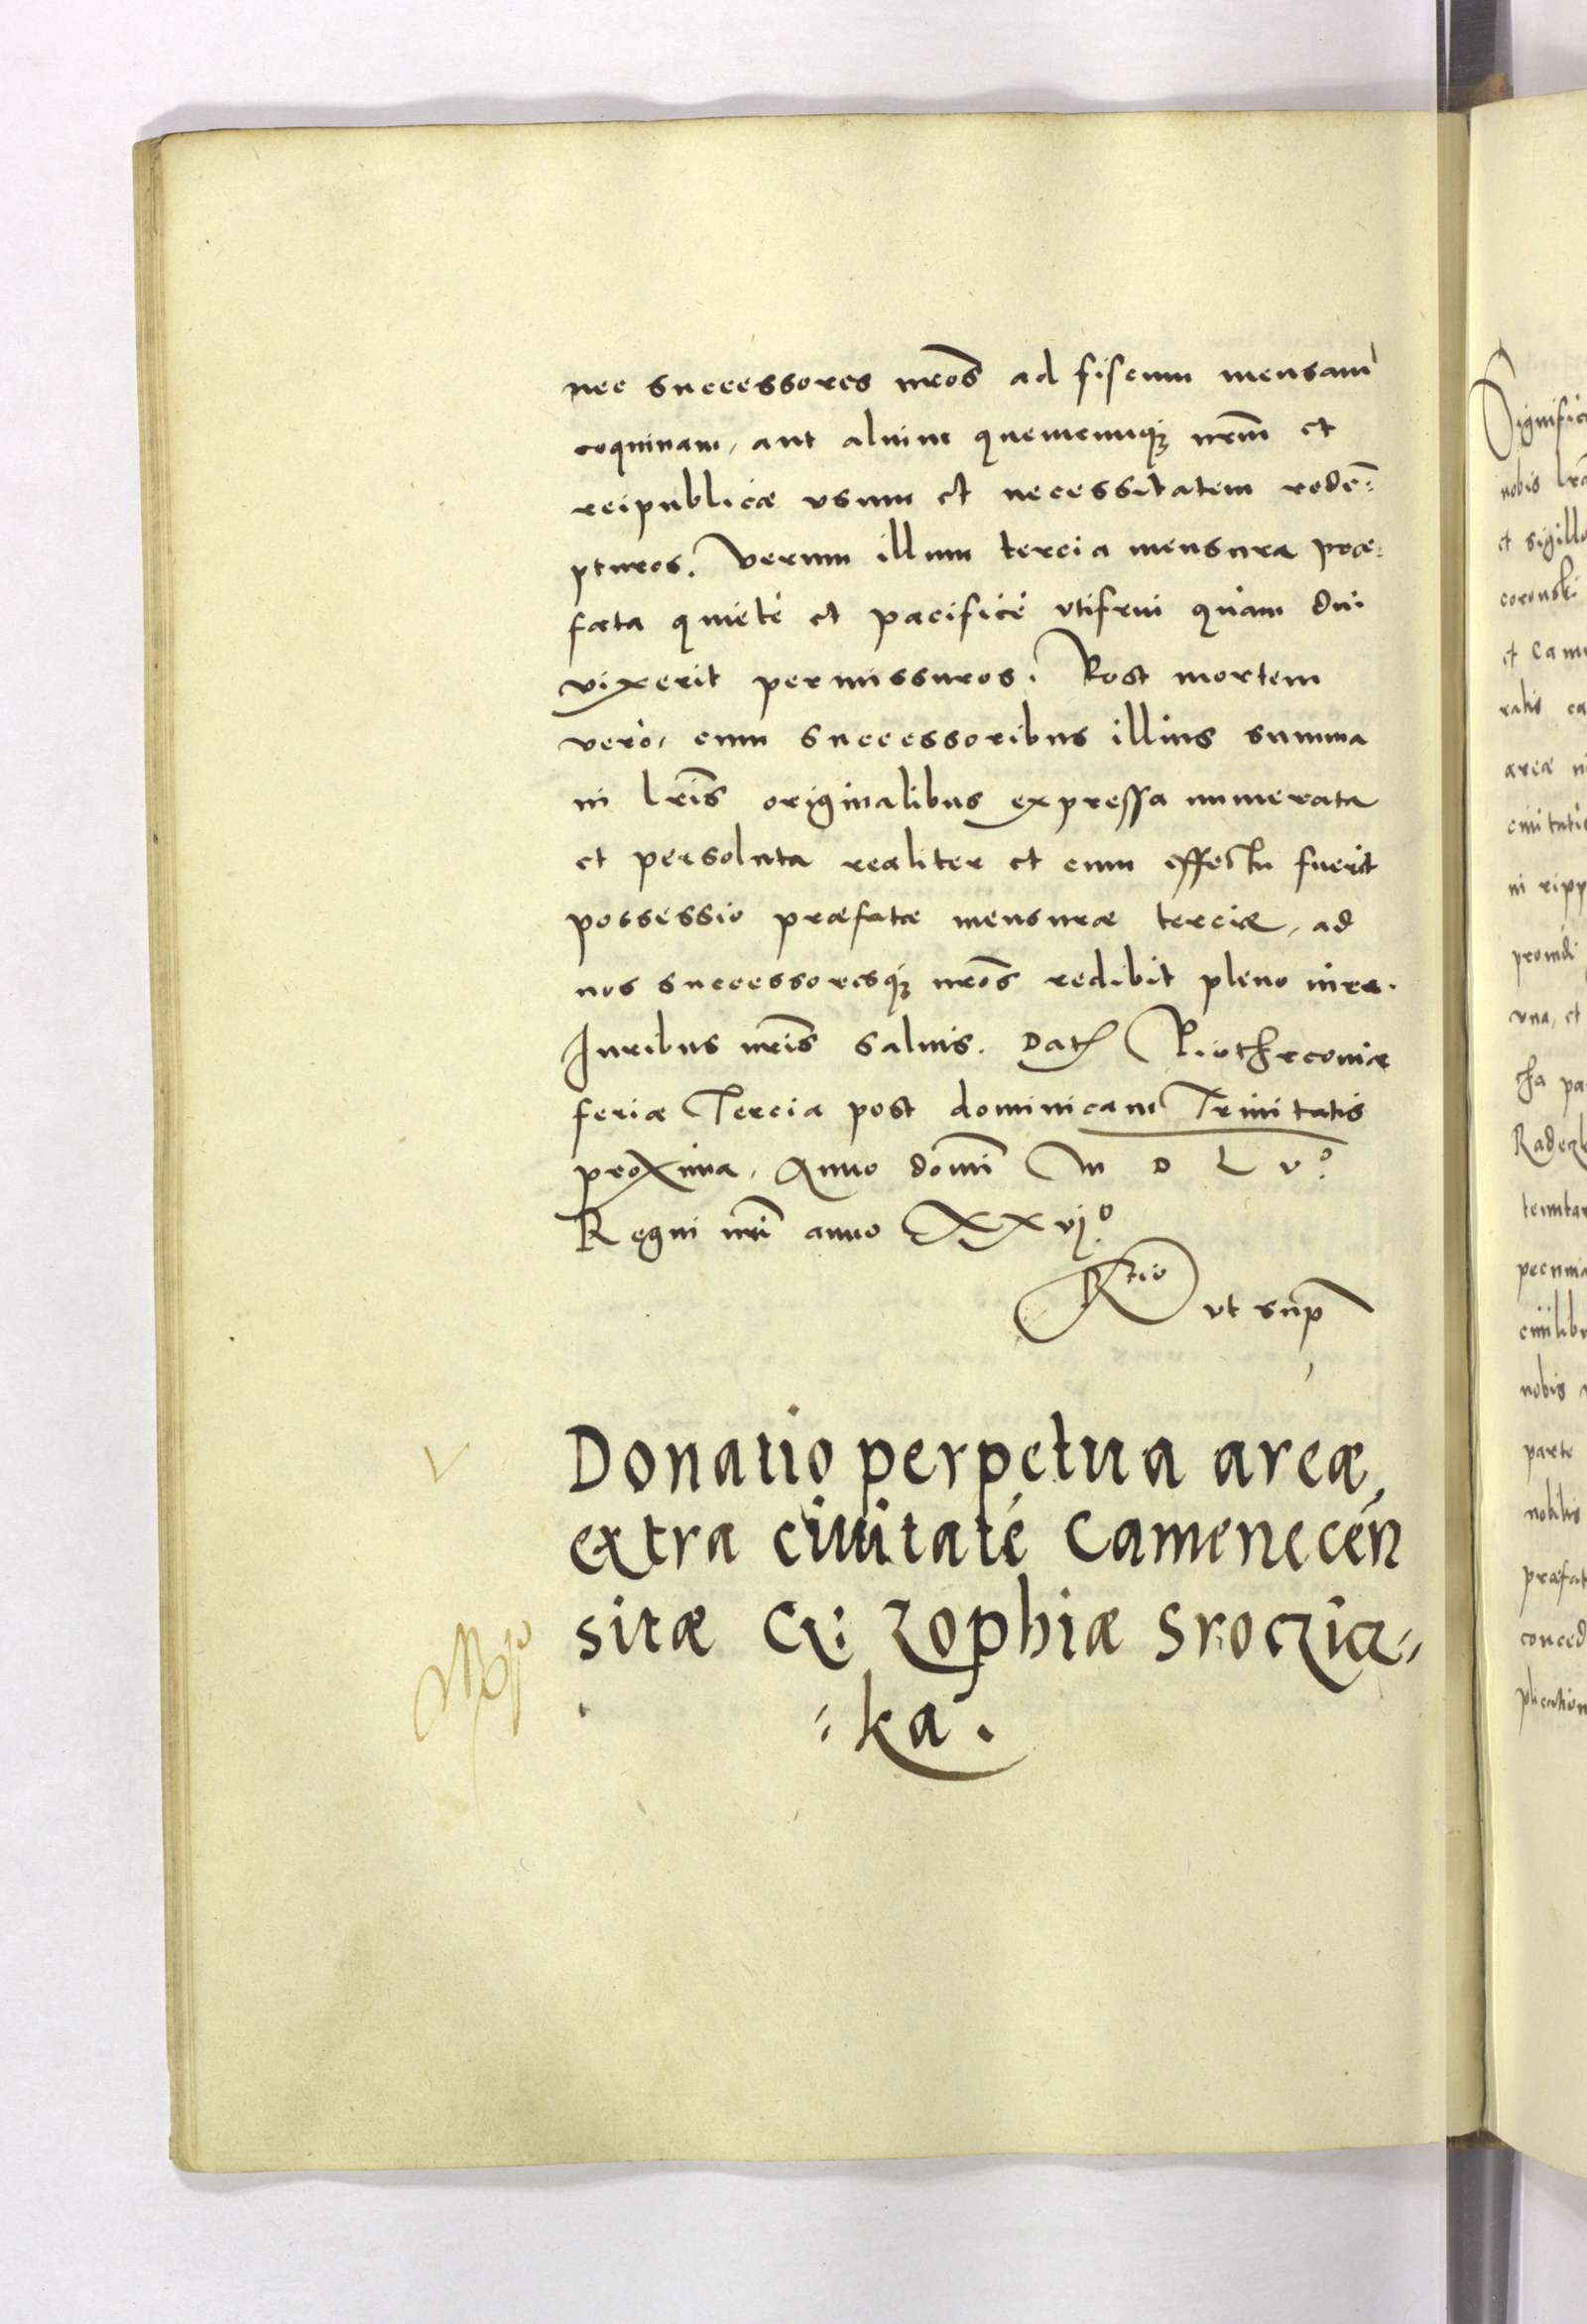 nec successores nr̃os ad fiscum mensam
coquinam, aut alium quemcunqꝫ nr̃m et
reipublicæ vsum et necessitatem redẽ=
pturos. Verum illum tercia mensura præ=
fata quietè et pacificè vtifrui quàm diu
vixerit permissuros. Post mortem
verò, cum successoribus illius summa
in lr̃is originalibus expressa numerata
et persoluta realiter et cum effectu fuerit
possessio præfatæ mensuræ terciæ, ad
nos successoresqꝫ nr̃os redibit pleno iure.
Iuribus nr̃is saluis. Dat. Piothrcouiæ
feria Tercia post dominicam Trinitatis
proxima. Anno domĩ M D L v°.
Regni nr̃i anno XXvj°.
Rtio vt sup
Donatio perpetua areæ
extra ciuitatẽ Camenecen
sitæ G: Zophiæ Sroczic=
=ka.
Significa
nobis lrã
et sigillo
coronski
et Came
ralis ca
areæ ni
ciuitatis
in ripp
proindi
vna, et
cha pa
Radecz
pecunia
ciuilibu
nobis
parte
nobilis
præfat
conced
plication